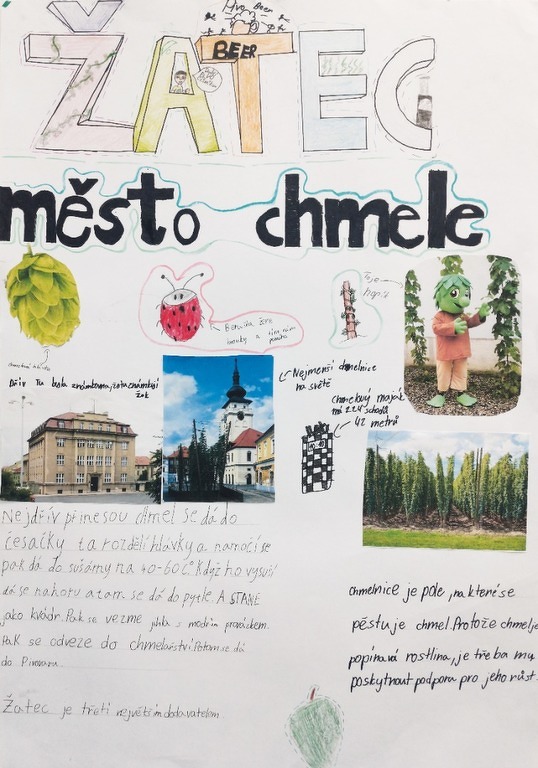 Pivo Beer
BEER
ŽATEC
město chmele
To je
Beruška žere
mouky a tím nám
pomáhá
Dřív tu byla známkovna, zota známkují
žok
Nejmenší chmelnice
na světě
chmelový maják
má 224 schodů
42 metrů
Nejdřív přinesou chmel se dá do
česačky ta rozdělí hlávky a namočí se
pak dá do sušárny na 40-60 C° Když ho vysuší
dá se nahoru a tam se dá do pytle. A STANE
jako kvádr. Pak se vezme s modrým provázkem.
Pak se odveze do chmelařství. Potom se dá
do Pivovaru.
Žatec je třetí největším dodavatelem
chmelnice je pole, na které se
pěstuje chmel. Protože chmel je
popínavá rostlina, je třeba mu
poskytnout podporu pro jeho růst.